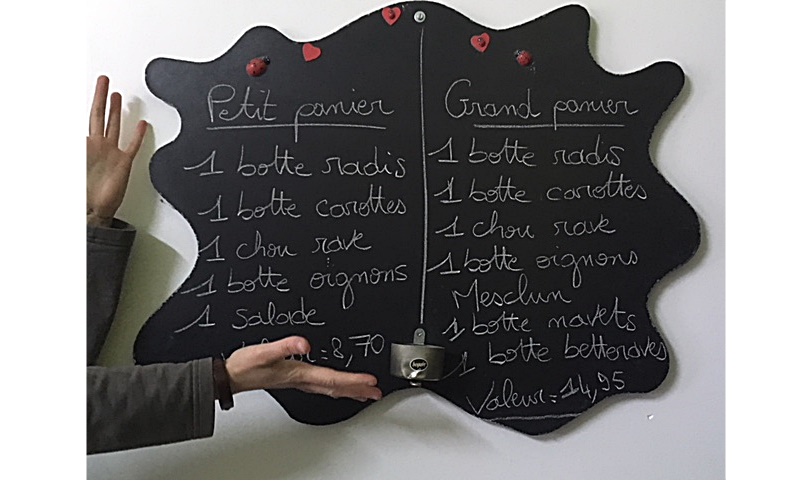 Petit panier
1 botte radis
1 botte carottes
1 chou rave
1 botte oignons
1 salade
= 8,70
Grand panier
1 botte radis
1 botte carottes
1 chou rave
1 botte oignons
Mesclun
1 botte navets
1 botte betteraves
Valeur = 14,95